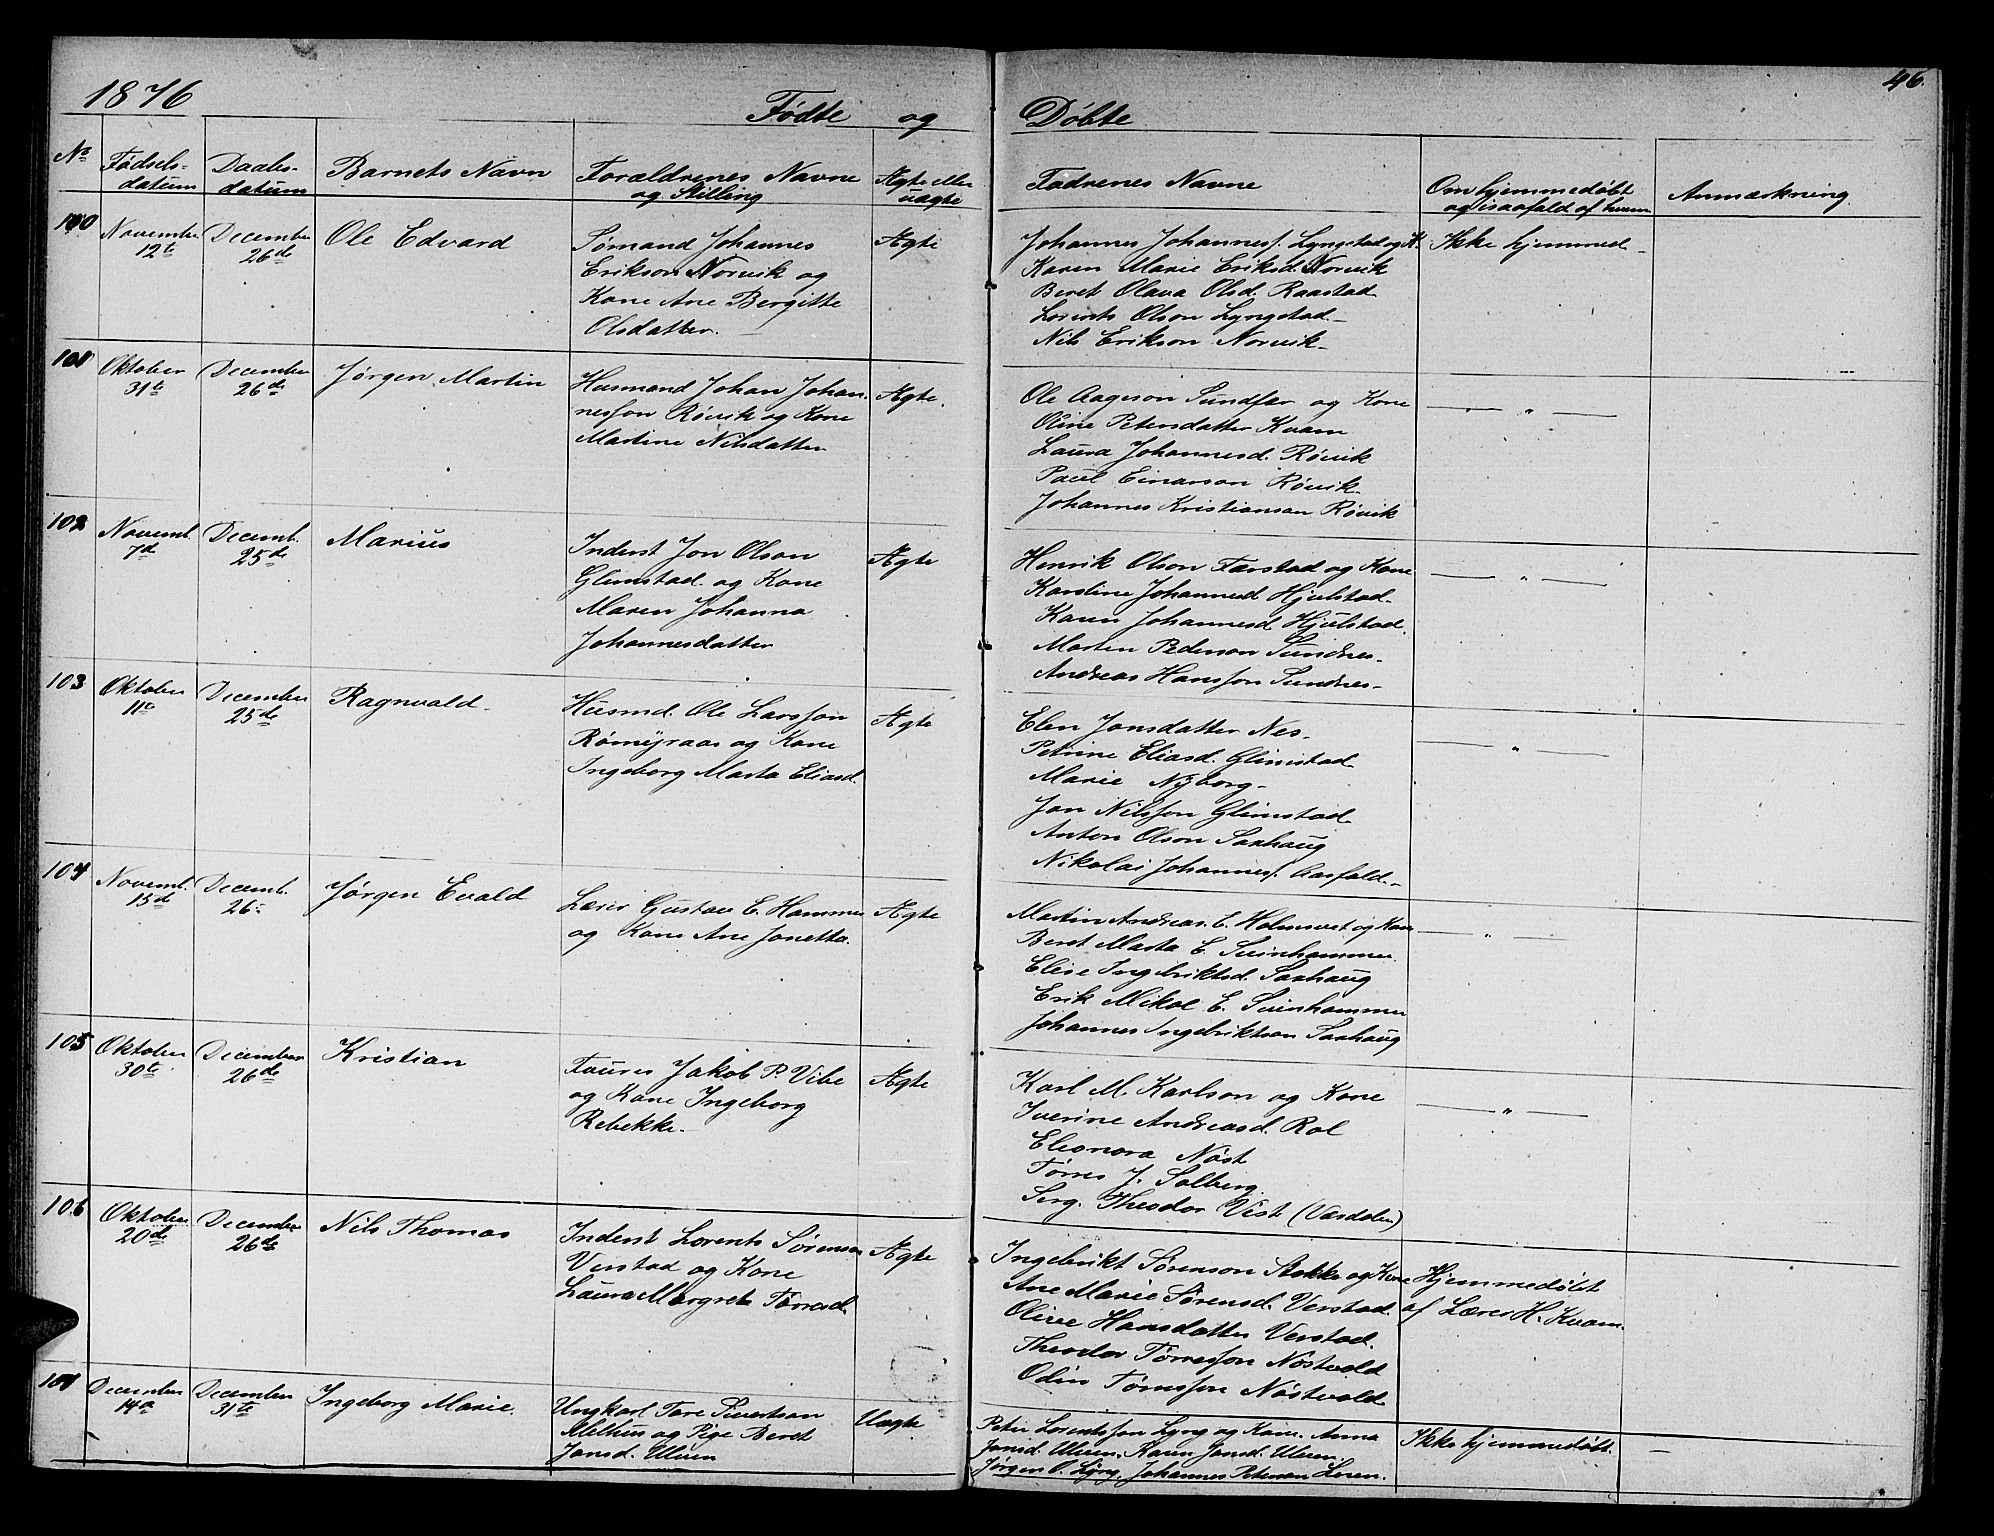 1876
46.
Fødte og Døbte
No
Fødsels-
datum
Daabs-
datum
Barnets Navn
Forældrenes Navne
og Stilling
Ægte eller
uægte
Fadrenes Navne
Om hjemmedøbt
og isaafald af hvem
Anmærkning
100
November
12te
December
26de
Ole Edvard
Sømand Johannes
Erikson Norvik og
Kone Ane Bergitte
Olsdatter.
Ægte
Johannes Johannesf. Lyngstad og K.
Karen Marie Eriksd. Norvik
Beret Olava Olsd. Raastad
Lorents Olson Lyngstad
Nils Erikson Norvik
Ikke hjemmed
101
Oktober
31te
December
26de
Jørgen Martin
Husmand Johan Johan-
nesson Røvik og Kone
Martine Nilsdatter
Ægte.
Ole Aageson Sundfær og Kone
Oline Petersdatter Kvam
Laura Johannesd. Røvik
Paul Einarson Røvik
Johannes Kristianson Røvik
— " —
102
Novemb.
7de
Decemb.
25de
Marius
Inderst Jon Olson
Glimstad og Kone
Maren Johanna
Johannesdatter
Ægte
Henrik Olson Færstad og Kone
Karoline Johannesd Hjulstad
Karen Johannesd Hjulstad.
Morten Pederson Sundnes
Andreas Hansson Sundnes
— " —
103
Oktober
11te
December
25de
Ragnvald
Husmd. Ole Larsson
Rømyraas og Kone
Ingeborg Marta Eliasd.
Ægte
Elen Jonsdatter Nes
Petrine Eliasd. Glimstad
Marie Nyborg
Jon Nilsson Glimstad
Anton Olson Saxhaug
Nikolai Johannesf. Aasfald
— " —
104
Novemb.
15de
Decemb.
26
Jørgen Evald
Lærer Gustav E. Hammer
og Kone Ane Janetta.
Ægte
Martin Andreas. E. Holmsvet og Kone
Beret Marta E. Svinhammer.
Elise Ingebriktsd. Saxhaug
Erik Mikal E. Svinhammer
Johannes Ingebriktson Saxhaug
— " —
105
Oktober
30te
December
26de
Kristian
Faurer Jakob P. Vibe
og Kone Ingeborg
Rebekke
Ægte
Karl M. Karlson og Kone
Iverine Andreasd. Rol
Eleonora Nøst
Tørres J. Salberg
Serg. Theodor Vist (Værdalen)
— " —
106
Oktober
20de
December
26de
Nils Thomas
Inderst Lorents Sørenson
Verstad og Kone
Laura Margrete Tørresd.
Ægte
Ingebrikt Sørenson Stokke og Kone
Ane Marie Sørensd. Verstad.
Oline Hansdatter Verstad.
Theodor Tørresson Nøstvold
Odin Tørresson Nøstvold
Hjemmedøbt
af Lærer H. Kvam.
107
December
14de
December
31te
Ingeborg Marie.
Ungkarl Tore Sivertsen
Melhus og Pige Beret
Jonsd. Ulven
Uægte
Peter Lorentsson Lyng og Kone Anna
Jonsd. Ulven. Karen Jonsd. Ulven.
Jørgen O. Lyng. Johannes Peterson Loren.
Ikke hjemmedøbt.